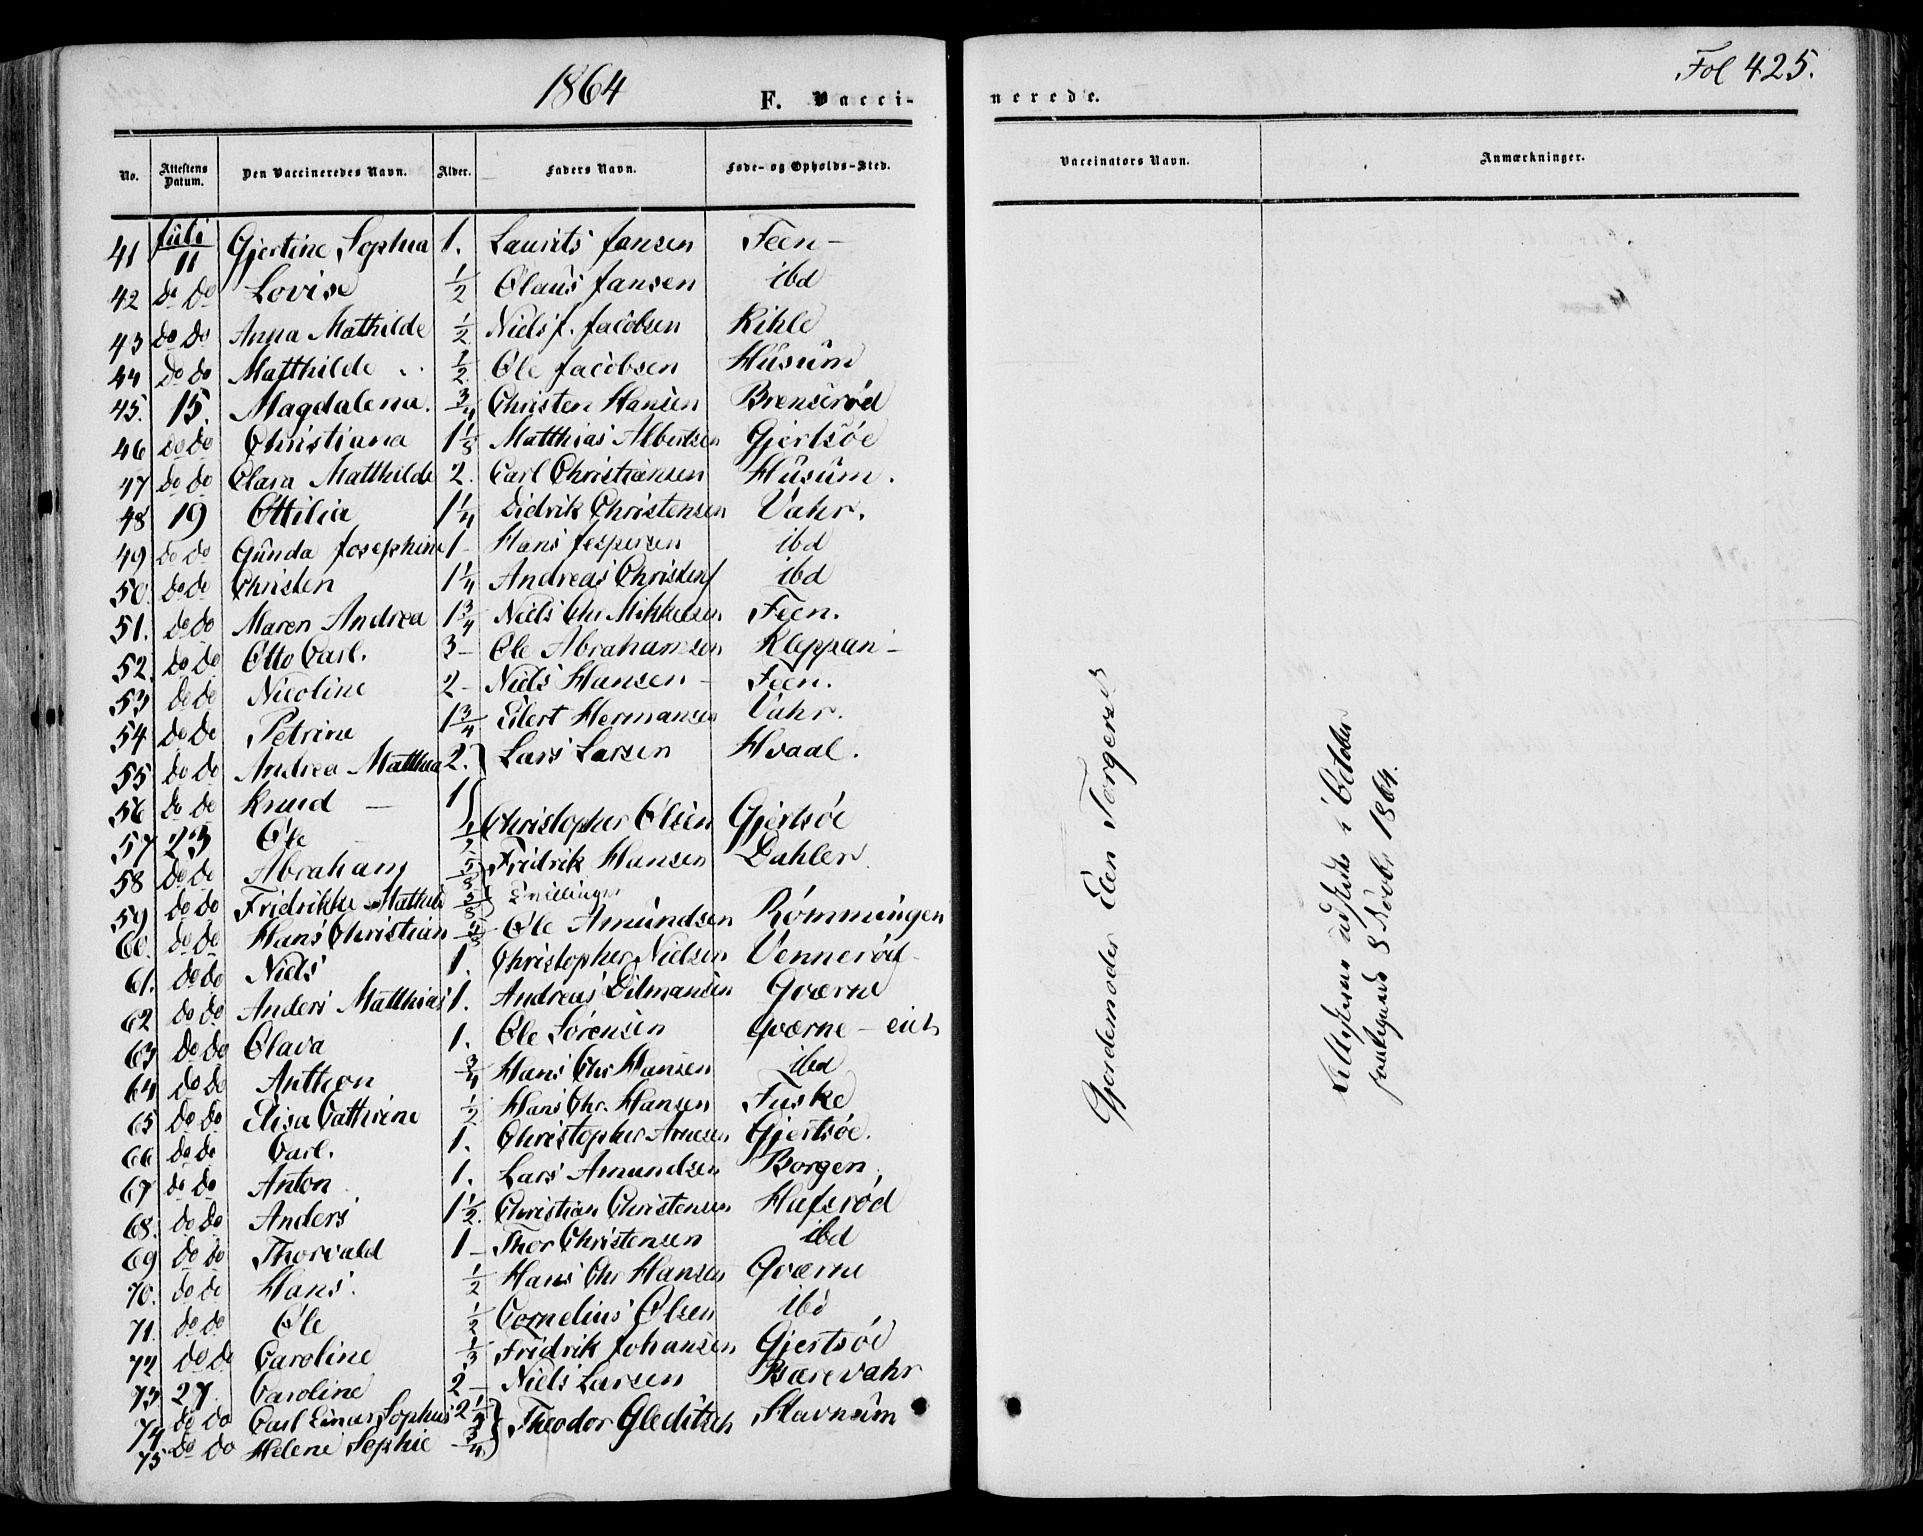 1864
F. Vacci-
No. Attestens Datum. Den Vaccineredes Navn. Alder. Faders Navn. Føde- og Opholds-Sted.
41 Juli 11 Gjertine Sophia 1. Laurits Jansen Feen -
42 do do Lovise 1/2 Claus Jansen ibd
43 do do Anna Mathilde 1/2 Niels J. Jacobsen Kihle
44 do do Matthilde 1/2 Ole Jacobsen Husum
45. 15. Magdalena. 3/4 Christen Hansen Brenserød
46 do do Christiana 1 1/3 Matthias Albertsen Gjertsøe
47 do do Clara Matthilde 2. Carl Christiansen Husum.
48 19 Ottilia 1 1/4 Didrik Christensen Vahr.
49 do do Gunda Josephine 1 - Hans Jespersen ibd
50. do do Christen 1 1/4 Andreas Christens ibd
51. do do Maren Andrea 1 3/4 Niels Chr Mikkelsen Feen.
52. do do Otto Carl. 3 - Ole Abrahamsen Kleppan -
53 do do Nicoline 2 - Niels Hansen - Feen.
54 do do Petrine 1 3/4 Eilert Hermansen Vahr.
55 do do Andrea Matthea 2. } Lars Larsen Hvaal.
56 do do Knud - 1 }
57 23 Ole 1/2 Christopher Olsen Gjertsøe
58 do do Abraham 3/8 } Fridrik Hansen Dahlen
59 do do Fridrikke Mathilde 3/8 } Tvillinger
60. do do Hans Christian Ole Amundsen Rømmingen
61. do do Niels 1. Christopher Nielsen Vennerød -
62 do do Anders Matthias 1. Andreas Dilmansen Gværne
63 do do Olava 1. Ole Sørensen Gværne - eie
64 do do Anthon 3/4 Hans Chr Hansen ibd
65 do do Elisa Cathrine 1/2 Hans Chr. Hansen Fuske
66 do do Carl. 1. Christopher Arnesen Gjertsøe.
67 do do Anton 1. Lars Amundsen Borgen.
68. do do Anders 1 1/2. Christian Christensen Hafsrød
69 do do Thorvald 1 - Thor Christensen ibd
70. do do Hans. 1/2 Hans Chr Hansen Gværne
71. do do Ole 1/2 Cornelius Olsen ibd
72 do do Caroline 1/3 Fridrik Johansen Gjertsøe
73 27. Caroline 2 - Niels Larsen Bærevahr
74 do do Carl Einar Sophus 2 1/2 } Theodor Gleditsch Stavnum
75 do do Helene Sophie 3/4 }
Fol 425.
nerede.
Vaccinators Navn. Anmærkninger.
Gjordemoder Elen Torgersen
Attesterne udstedte i October
forelagende 8 Novbr 1864.